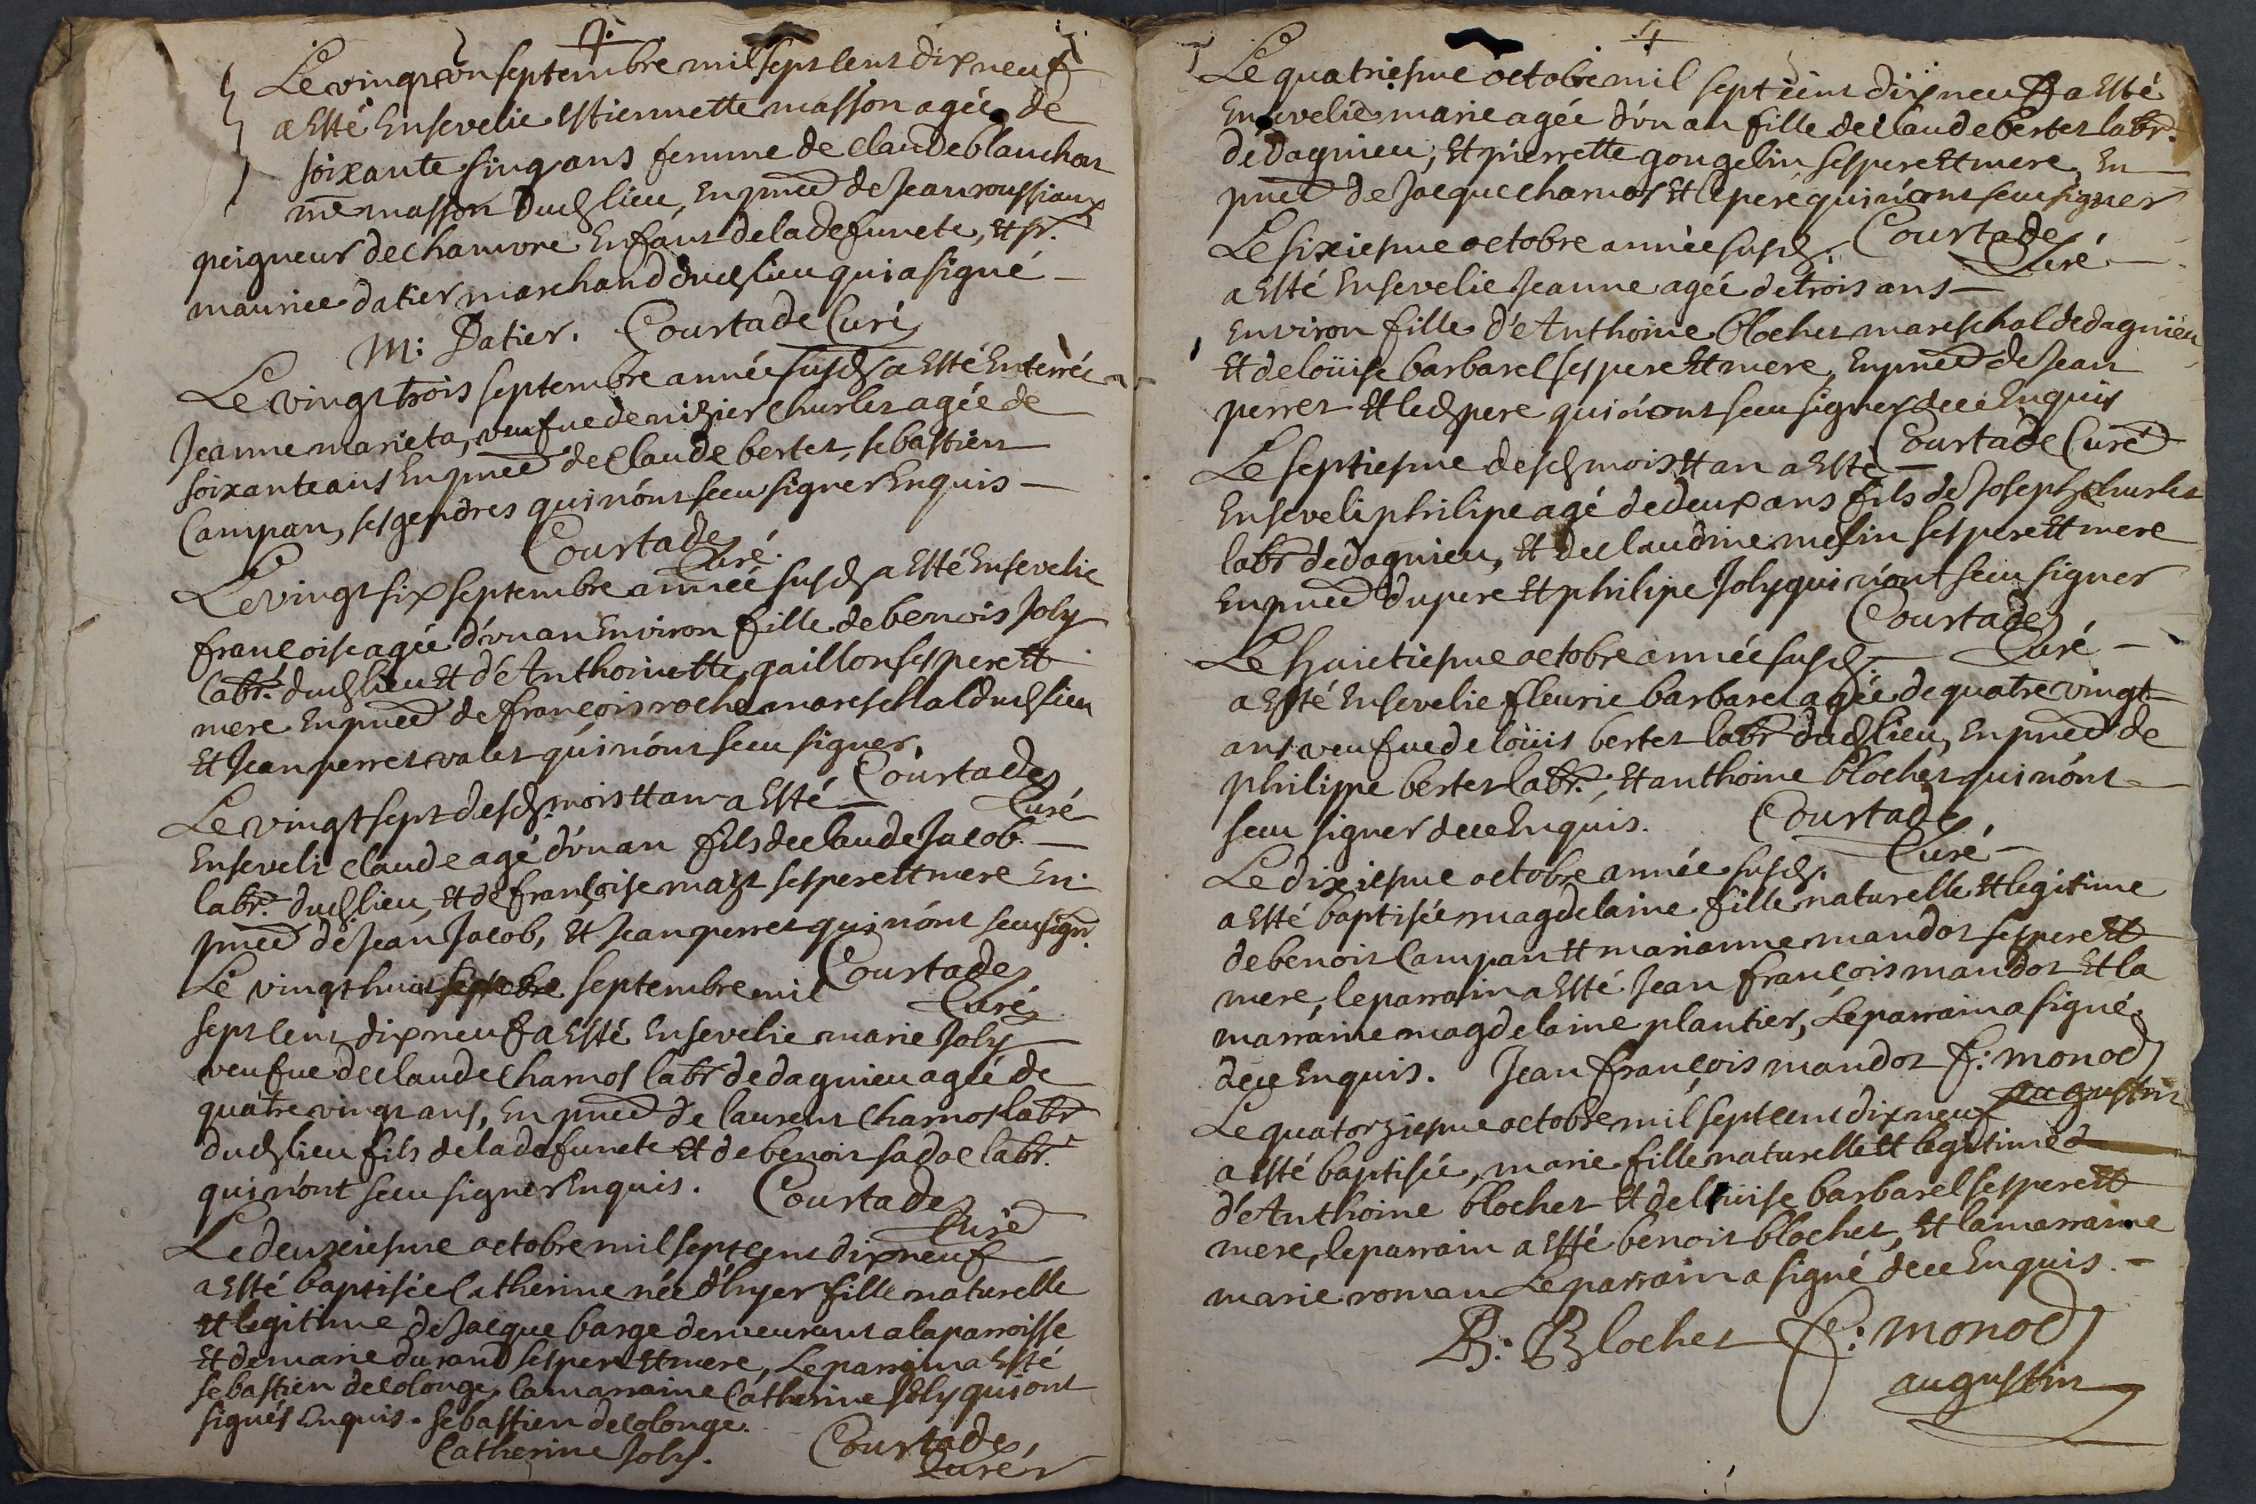 Le vingt un septembre mil sept cent dix neuf
a Esté Ensevelie Estiennette masson agée de
soixante sinq ans femme de claude blanchar
me masson dud lieu, En pnce de Jean roussiaux
peigneur de chanvre Enfant de la defuncte, Et sr.
maurice datier marchand dud lieu qui a signé
M: Datier. Courtade Curé
Le vingt trois septembre année susd a Esté Enterrée
Jeanne marieta, veufue de nizier Churlet agée de
soixante ans En pnce de claude bertet, sebastien
Campan, ses gendres qui n'ont sceu signer Enquis
Courtade
Curé.
Le vingt six septembre année susd a Esté Ensevelie
francoise agée d'vn an Environ fille de benois Joly
labr. dud lieu Et d'Anthoinette gaillon ses pere Et
mere En pnce de françois roche mareschal dud lieu
Et Jean perret valet qui n'ont sceu signer.
Courtade
Le vingt sept desd. mois Et an a Esté
Curé
Enseveli claude agé d'vn an fils de claude Jacob
labr. dud lieu, Et de françoise ses pere Et mere En
pnce de Jean Jacob, Et Jean perret qui n'ont sceu sign.
Courtade
Le vingt huit septbre septembre mil
Curé
sept cent dix neuf a Esté Ensevelie marie Joly
veufue de claude Charnos labr de dagnieu agée de
quatre vingt ans, En pnce de laurent Charnos labr
dud lieu fils de la defuncte Et de benoit sadoc labr.
qui n'ont sceu signer Enquis. Courtade
Curé
Le deuxiesme octobre mil sept cent dix neuf
a Esté baptisée Catherine née d'hyer fille naturelle
Et legitime de Jacque barge demeurant a la parroisse
Et de marie durand ses pere Et mere, Le parrain a Esté
sebastien decolonge, la marraine Catherine Joly qui ont
signés Enquis. sebastien decolonge.
Catherine Joly. Courtade
Curé
Le quatriesme octobre mil sept cent dix neuf a Esté
Ensevelie marie agée d'vn an fille de claude bertet labr.
de dagnieu, Et pierrette gongelin ses pere Et mere En
pnce de Jacque charnos Et le pere qui n'ont sceu signer
Courtade
Le sixiesme octobre année susd.
Curé
a Esté Ensevelie Jeanne agée de trois ans
Environ fille d'Anthoine blochet mareschal de dagnieu
Et de loüise barbarel ses pere Et mere, En pnce de Jean
perret Et led pere qui n'ont sceu signer de ce Enquis
Courtade Curé
Le septiesme desd mois Et an a Esté
Enseveli philipe agé de deux ans fils de Joseph churlet
labr de dagnieu, Et de claudine ses pere Et mere
En pnce du pere Et philipe Joly qui n'ont sceu signer
Courtade
Le huictiesme octobre année susd.
Curé
a Esté Ensevelie fleurie barbaret agée de quatre vingt
ans veufue de loüis bertet labr dud lieu, En pnce de
philippe bertet labr. Et anthoine blochet qui n'ont
sceu signer de ce Enquis. Courtade
Curé
Le dixiesme octobre année susd.
a Esté baptisée magdelaine fille naturelle Et legitime
de benoit Campan Et marianne mandot ses pere Et
mere, le parrain a Esté Jean françois mandot Et la
marraine magdelaine plantier, Le parrain a signé
de ce Enquis. Jean françois mandot f: monod
augustin
Le quatorziesme octobre mil sept cent dix neuf
a Esté baptisée, marie fille naturelle Et legitime
d'Anthoine blochet Et de loüise barbarel ses pere Et
mere, le parrain a Esté benoit blochet, Et la marraine
marie roman Le parrain a signé de ce Enquis.
B: Blochet f: monod
augustin